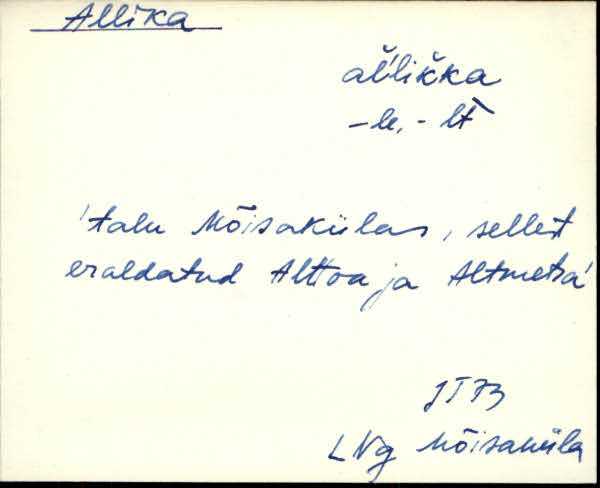 Allika
al'likka
-le, -lt
'talu Mõisakülas, sellest
eraldatud Alttoa ja Altmetsa'
JT73
LNg Mõisaküla